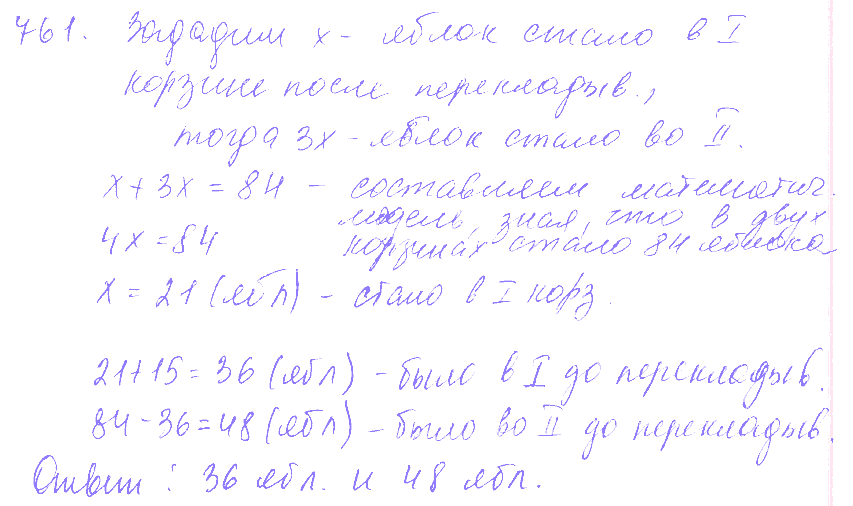 761. Зададим x - яблок стало в I
корзине после перекладыв.,
тогда 3x - яблок стало во II.
x + 3x = 84 - составляем математич.
модель, зная, что в двух
4x = 84 корзинах стало 84 яблока
x = 21 (ябл) - стало в I корз.
21+15 = 36 (ябл) - было в I до перекладыв.
84-36=48 (ябл) - было во II до перекладыв.
Ответ: 36 ябл. и 48 ябл.